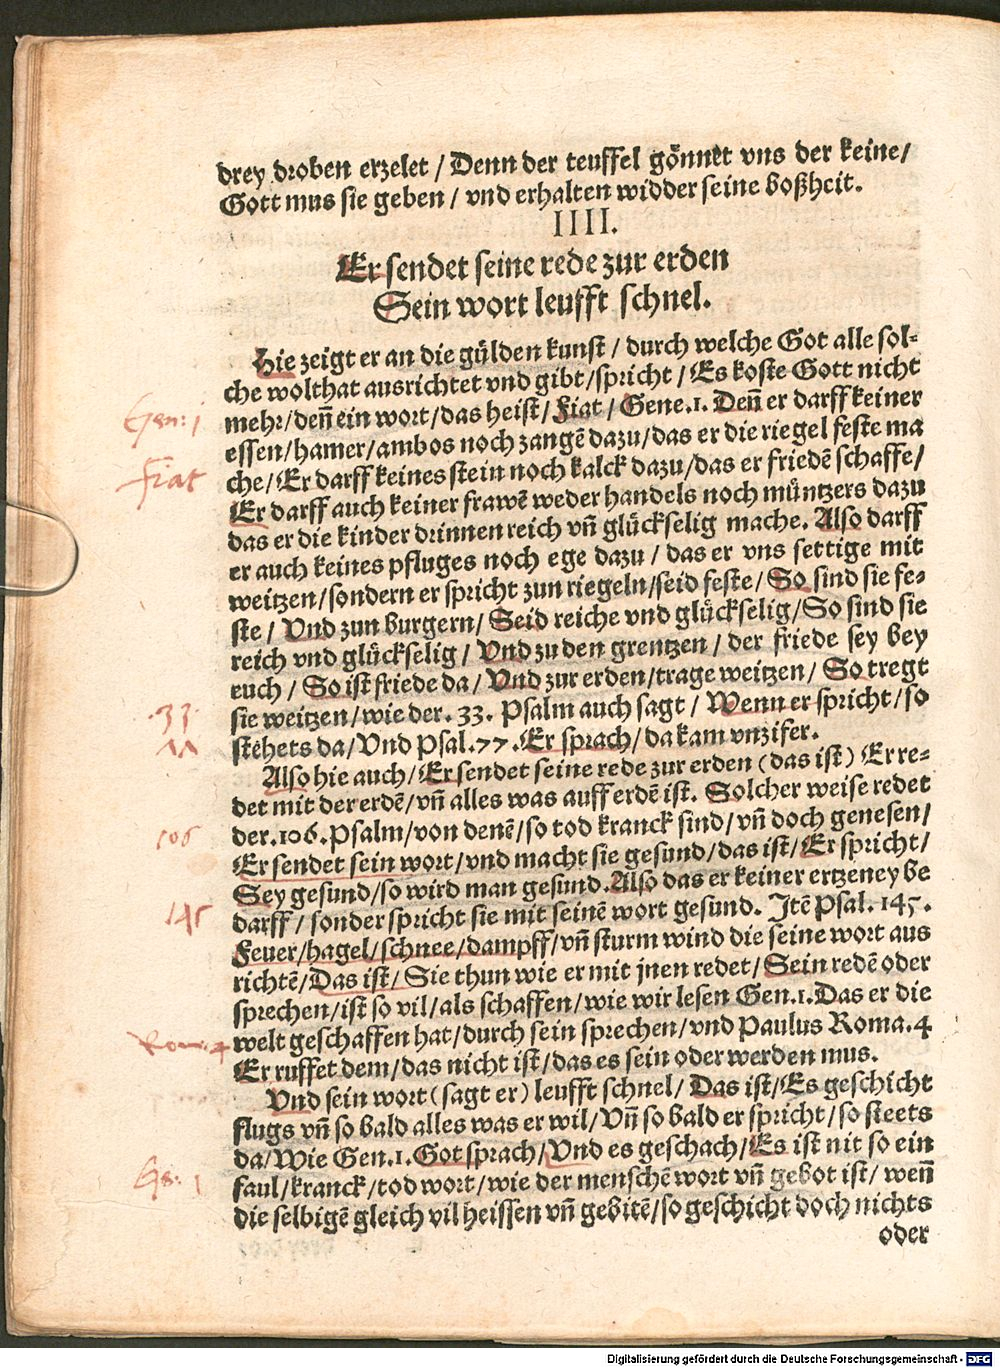 drey droben erzelet / Denn der teuffel gönnet vns der keine/
Gott mus sie geben / vnd erhalten widder seine boßheit.
IIII.
Er sendet seine rede zur erden
Sein wort leufft schnel.
Hie zeigt er an die gülden kunst / durch welche Got alle sol-
che wolthat ausrichtet vnd gibt/spricht / Es koste Gott nicht
Gen: 1 mehr/deñ ein wort/das heist/Fiat/ Gene.1. Deñ er darff keiner
essen/hamer/ambos noch zangē dazu/das er die riegel feste ma
Fiat che/Er darff keines stein noch kalck dazu/das er friedē schaffe/
Er darff auch keiner frawē weder handels noch müntzers dazu
das er die kinder drinnen reich vñ glückselig mache. Also darff
er auch keines pfluges noch ege dazu / das er vns settige mit
weitzen/sondern er spricht zun riegeln/seid feste/ So sind sie fe-
ste / Vnd zun burgern/ Seid reiche vnd glückselig/So sind sie
reich vnd glückselig/ Vnd zu den grentzen/ der friede sey bey
euch / So ist friede da/ Vnd zur erden/trage weitzen/ So tregt
.33. sie weitzen/wie der. 33. Psalm auch sagt/ Wenn er spricht/so
stehets da/Vnd Psal.77.Er sprach/da kam vnzifer.
Also hie auch/Er sendet seine rede zur erden (das ist) Er re-
det mit der erdē/vñ alles was auff erdē ist. Solcher weise redet
106 der.106.Psalm/von denē/so tod kranck sind/vñ doch genesen/
Er sendet sein wort/vnd macht sie gesund/das ist/Er spricht/
Sey gesund/so wird man gesund.Also das er keiner ertzeney be
145 darff/ sonder spricht sie mit seinē wort gesund. Jtē Psal.145.
Feuer/hagel/schnee/dampff/vñ sturm wind die seine wort aus
richtē/Das ist/ Sie thun wie er mit jnen redet/Sein redē oder
sprechen/ist so vil/als schaffen/wie wir lesen Gen.1.Das er die
Rom. 4 welt geschaffen hat/durch sein sprechen/vnd Paulus Roma.4
Er ruffet dem/das nicht ist/das es sein oder werden mus.
Vnd sein wort (sagt er) leufft schnel/ Das ist/Es geschicht
flugs vñ so bald alles was er wil/Vñ so bald er spricht/so steets
da/Wie Gen.1.Got sprach/Vnd es geschach/Es ist nit so ein
Gē: 1 faul/kranck/tod wort/wie der menschē wort vñ gebot ist/ weñ
die selbigē gleich vil heissen vñ gebitē/so geschicht doch nichts
oder
Digitalisierung gefördert durch die Deutsche Forschungsgemeinschaft - DFG